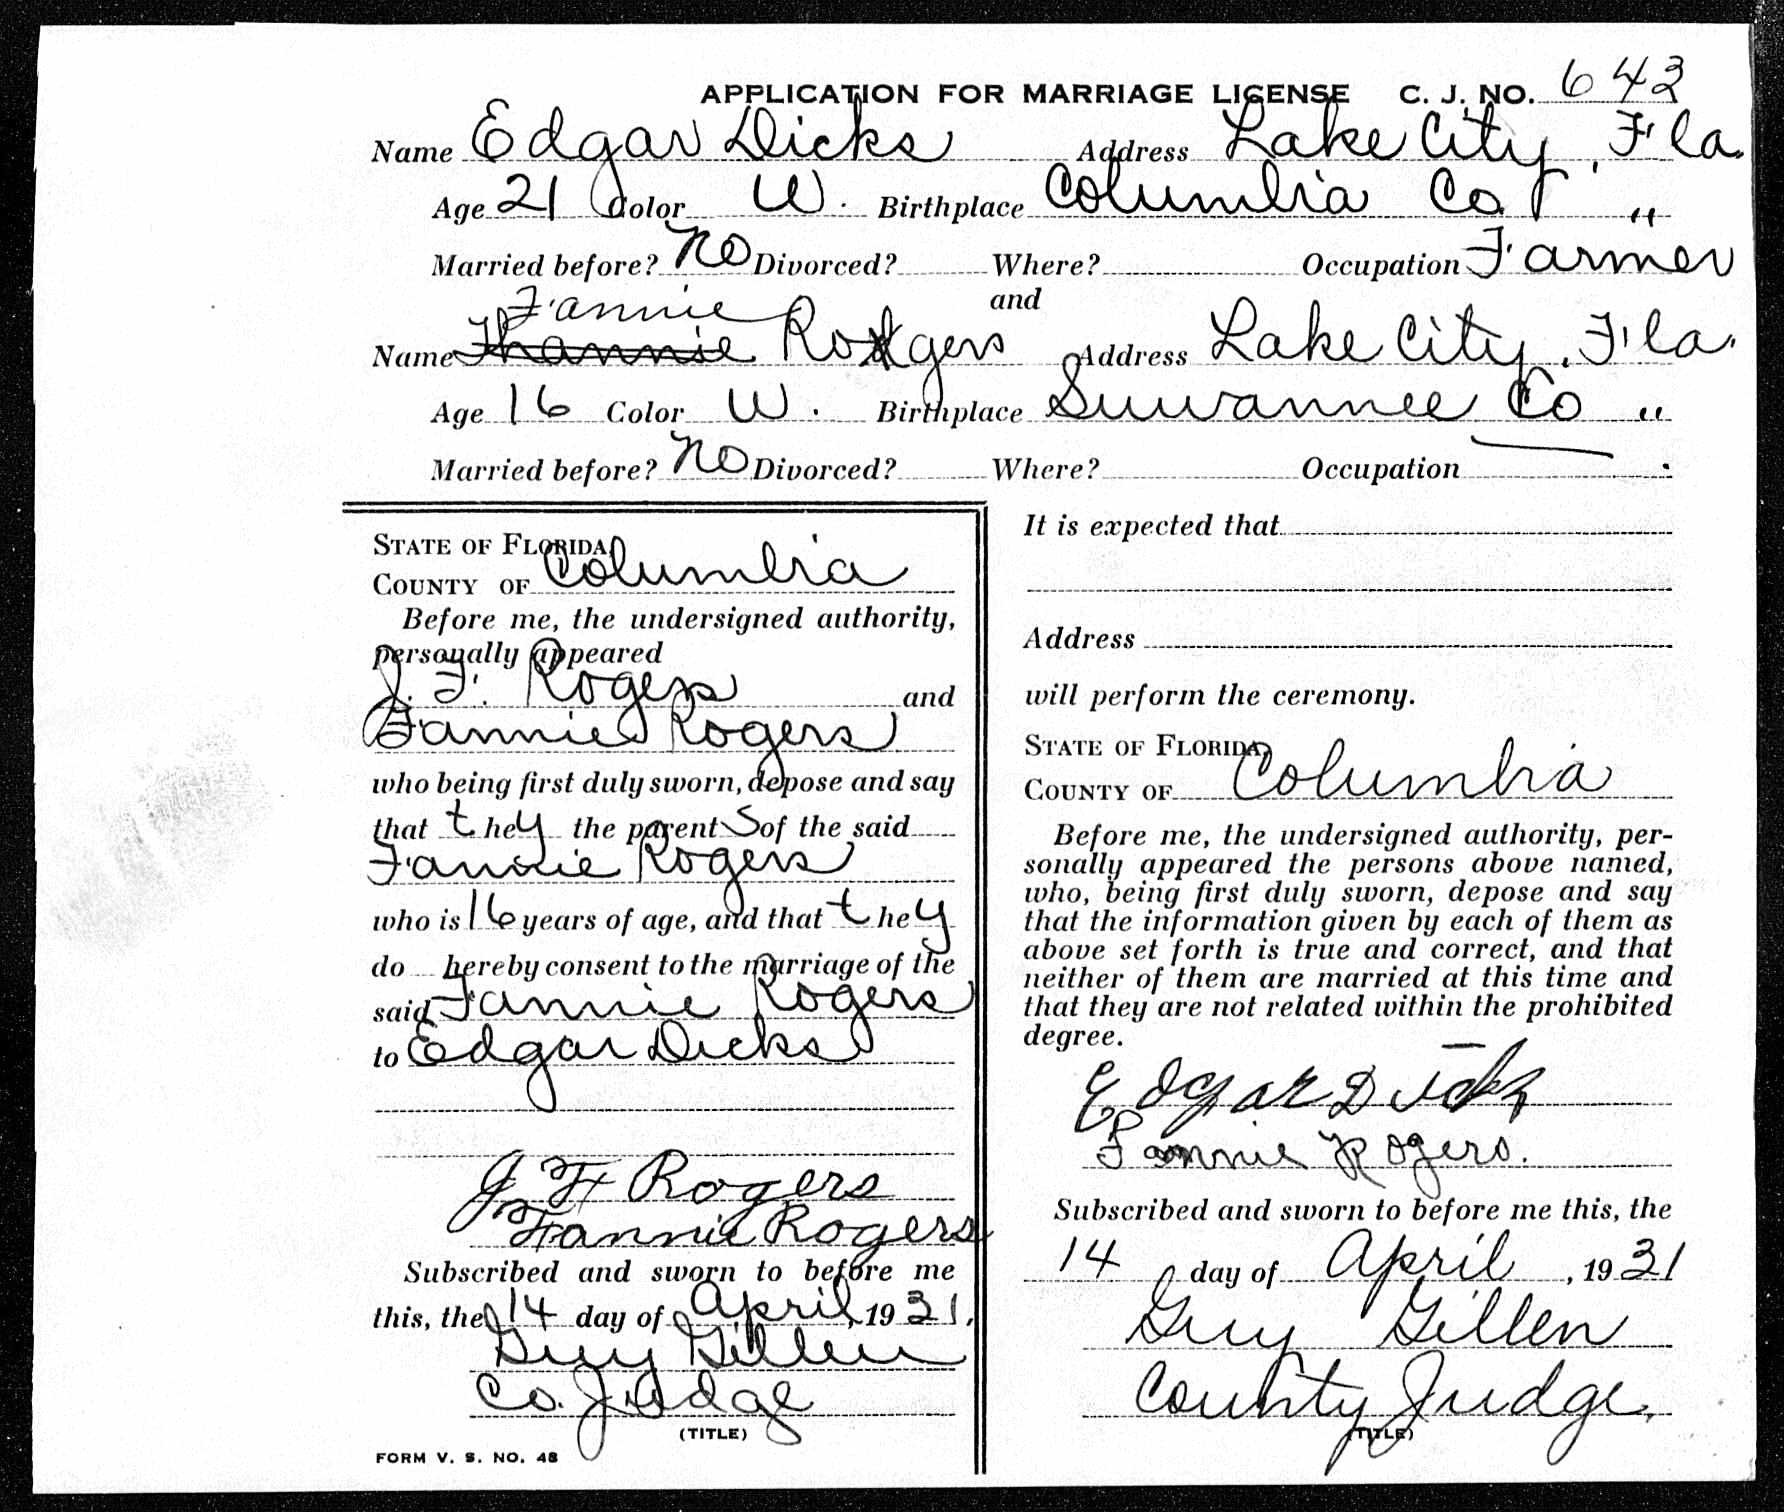 APPLICATION FOR MARRIAGE LICENSE C. J. NO. 643
Name Edgar Dicks Address Lake City, Fla.
Age 21 Color W. Birthplace Columbia Co. "
Married before? No Divorced? Where? Occupation Farmer
and
Fannie
Name Thannie Rodgers Address Lake City, Fla.
Age 16 Color W. Birthplace Suwannee Co "
Married before? No Divorced? Where? Occupation
STATE OF FLORIDA,
COUNTY OF Columbia
Before me, the undersigned authority,
personally appeared
J. F. Rogers and
Fannie Rogers
who being first duly sworn, depose and say
that they the parents of the said
Fannie Rogers
who is 16 years of age, and that they
do hereby consent to the marriage of the
said Fannie Rogers
to Edgar Dicks
J F Rogers
Fannie Rogers
Subscribed and sworn to before me
this, the 14 day of April, 1931.
Guy Gillen
Co. Judge
(TITLE)
FORM V. S. NO. 48
It is expected that
Address
will perform the ceremony.
STATE OF FLORIDA,
COUNTY OF Columbia
Before me, the undersigned authority, per-
sonally appeared the persons above named,
who, being first duly sworn, depose and say
that the information given by each of them as
above set forth is true and correct, and that
neither of them are married at this time and
that they are not related within the prohibited
degree.
Edgar Dicks
Fannie Rogers.
Subscribed and sworn to before me this, the
14 day of April, 1931
Guy Gillen
County Judge.
(TITLE)